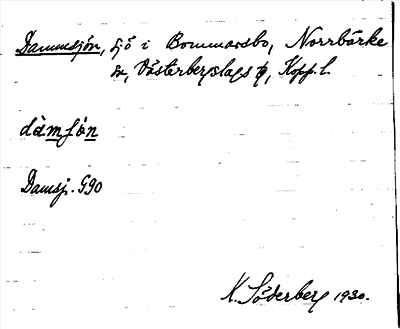 Dammsjön, sjö i Bommarsbo, Norrbärke
sn, Västerbergslags Kopp. l.
dàmʃön
Damsj. G90
K. Söderberg 1930.